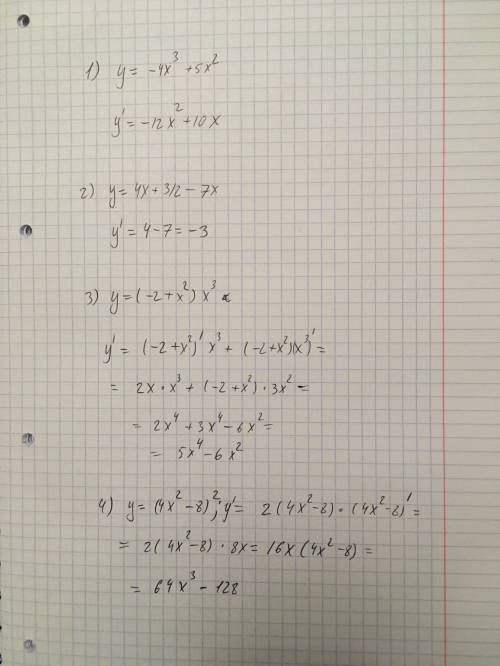 1) y = -4x³ + 5x²
y' = -12x² + 10x
2) y = 4x + 3/2 - 7x
y' = 4 - 7 = -3
3) y = (-2 + x²) x³
y' = (-2 + x²)' x³ + (-2 + x²)(x³)' =
= 2x · x³ + (-2 + x²) · 3x² =
= 2x⁴ + 3x⁴ - 6x² =
= 5x⁴ - 6x²
4) y = (4x² - 8)²; y' = 2(4x² - 8) · (4x² - 8)' =
= 2(4x² - 8) · 8x = 16x(4x² - 8) =
= 64x³ - 128